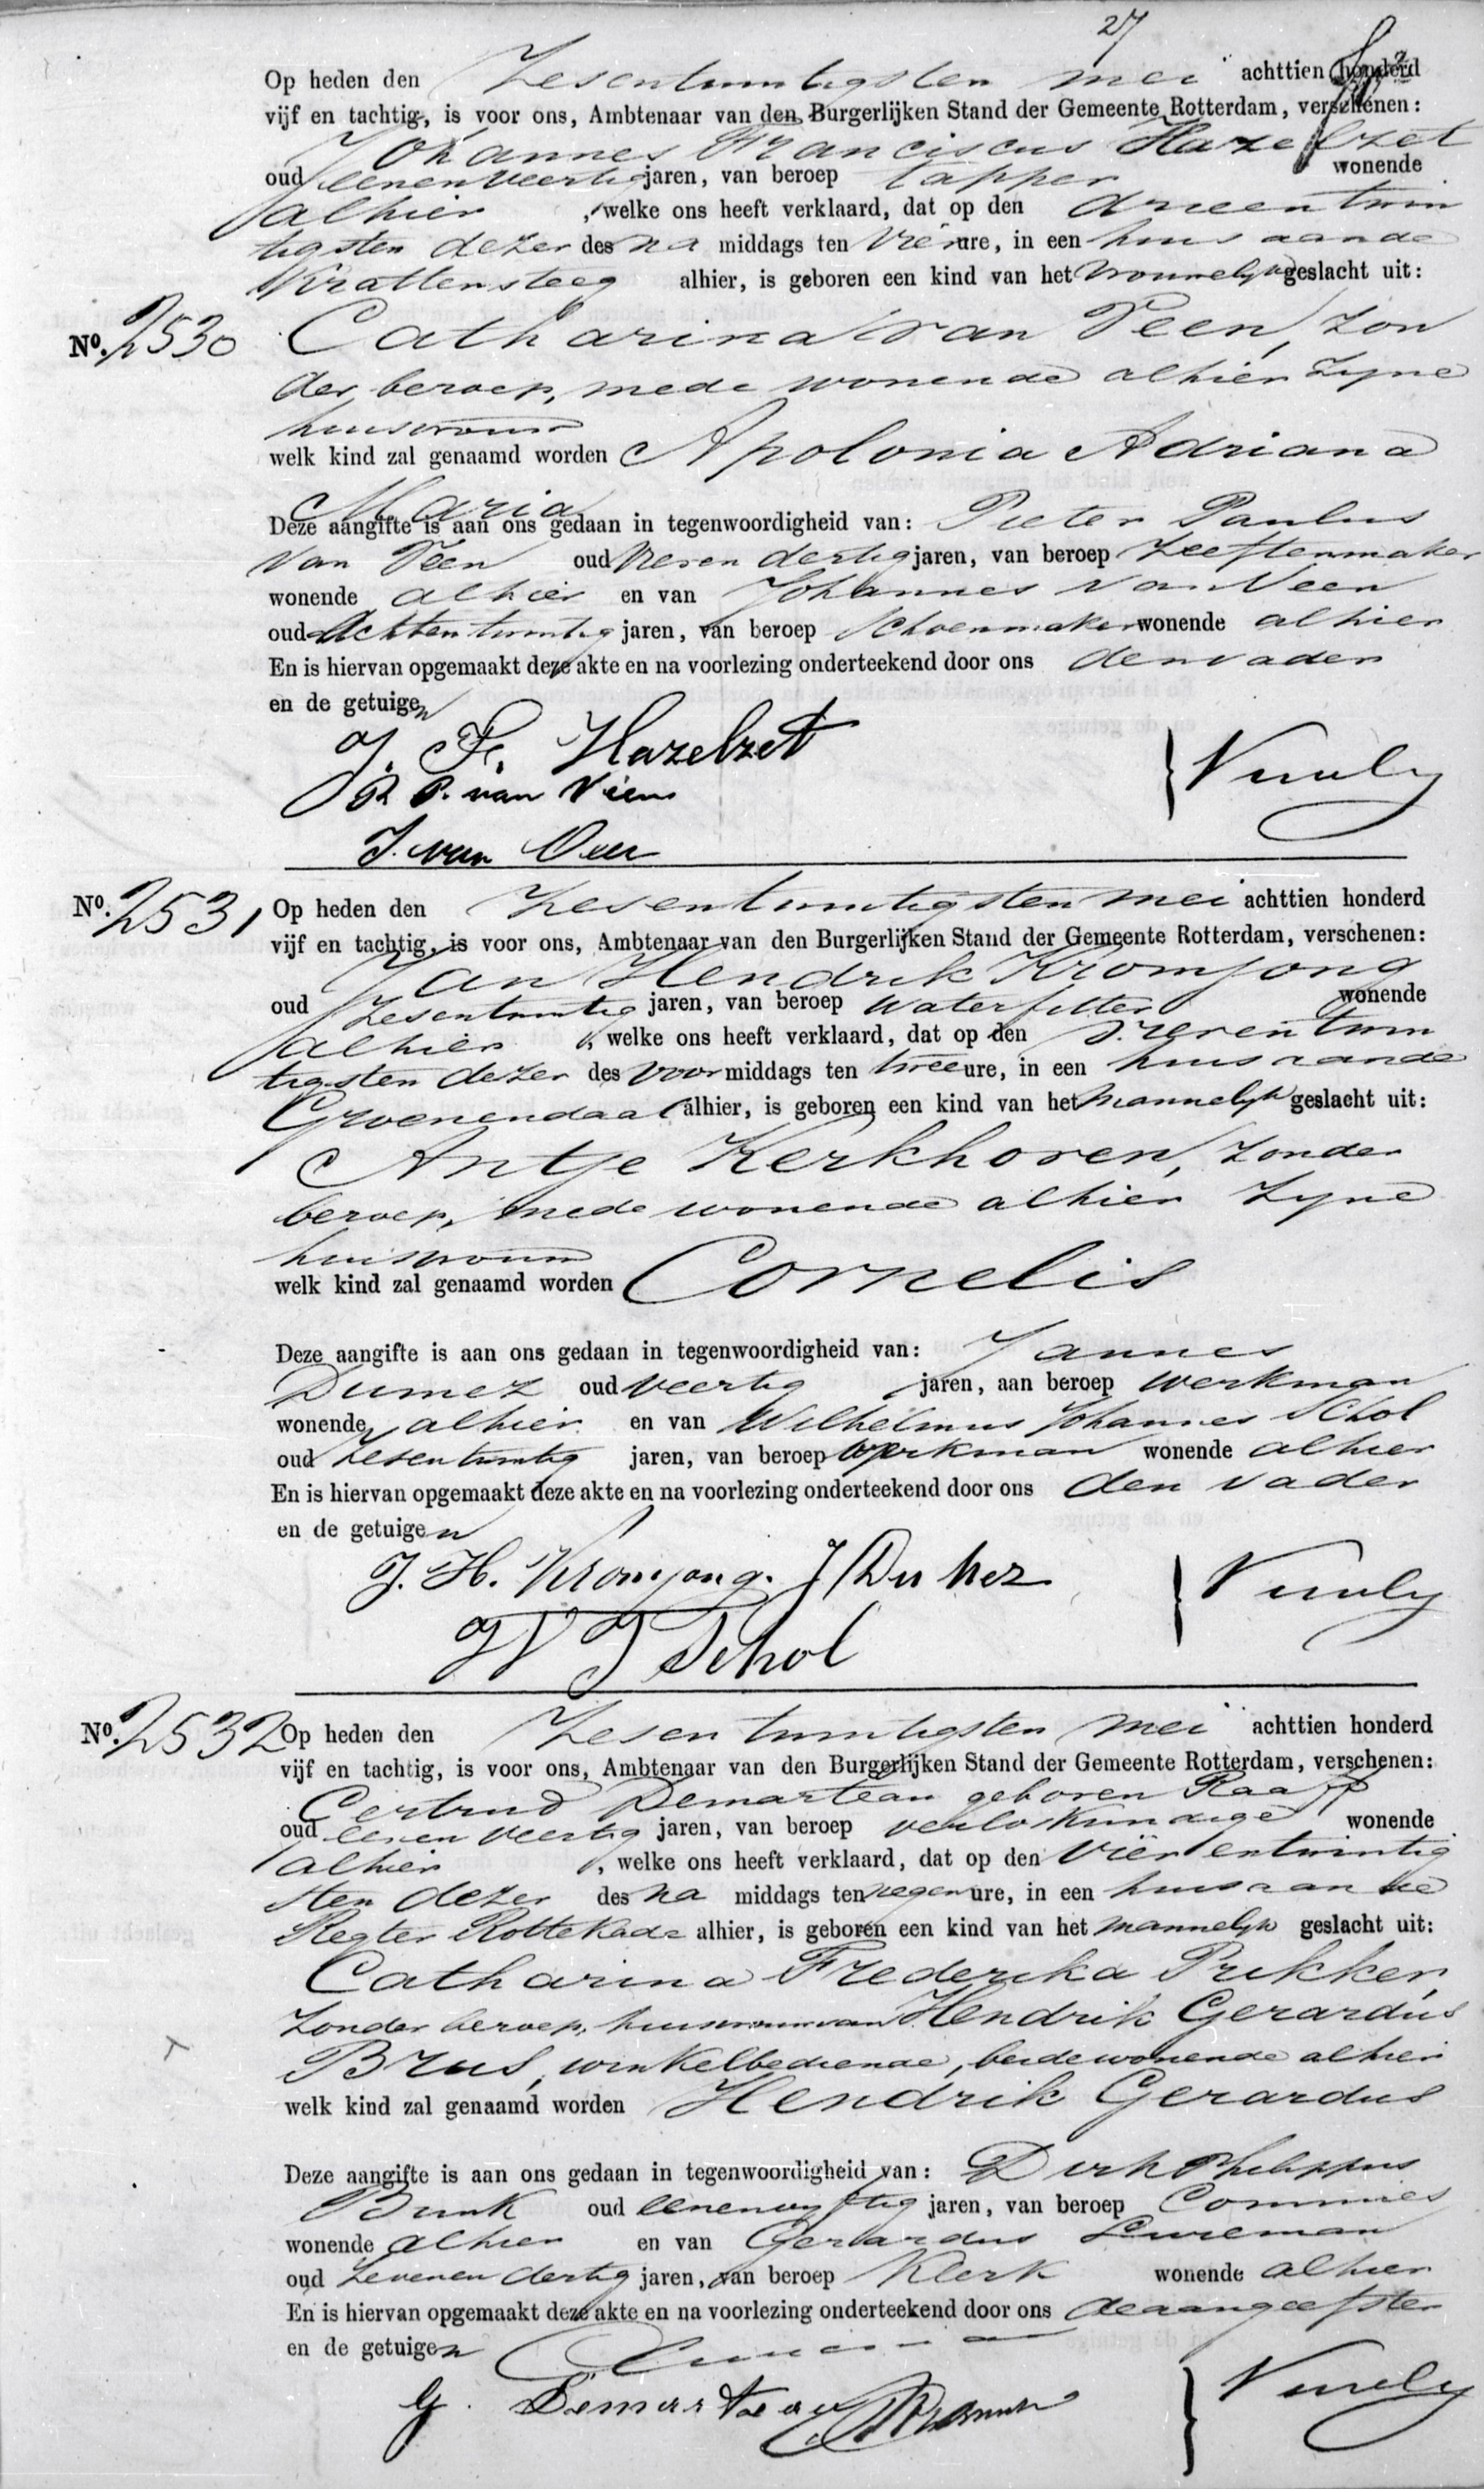 27
Op heden den Zesentwintigsten mei achttien honderd
vijf en tachtig, is voor ons, Ambtenaar van den Burgerlijken Stand der Gemeente Rotterdam, verschenen:
Johannes Franciscus Hazelzet
oud eenenveertig jaren, van beroep tapper wonende
alhier, welke ons heeft verklaard, dat op den drieentwin
tigsten dezer des na middags ten vier ure, in een huis aan de
Krattensteeg alhier, is geboren een kind van het vrouwelijk geslacht uit:
No. 2530 Catharina van Veen, zon
der beroep, mede wonende alhier zyne
huisvrouw
welk kind zal genaamd worden Apolonia Adriana
Maria
Deze aangifte is aan ons gedaan in tegenwoordigheid van: Pieter Paulus
van Veen oud zevendertig jaren, van beroep
wonende alhier en van Johannes van Veen
oud Achtentwintig jaren, van beroep Schoenmaker wonende alhier
En is hiervan opgemaakt deze akte en na voorlezing onderteekend door ons den vader
en de getuigen
J. F. Hazelzet
P. P. van Veen
J. van Veen
No. 2531 Op heden den Zesentwintigsten mei achttien honderd
vijf en tachtig, is voor ons, Ambtenaar van den Burgerlijken Stand der Gemeente Rotterdam, verschenen:
Jan Hendrik Kromjong
oud Zesentwintig jaren, van beroep waterfitter wonende
alhier, welke ons heeft verklaard, dat op den
tigsten dezer des voor middags ten twee ure, in een huis aan de
Groenendaal alhier, is geboren een kind van het mannelyk geslacht uit:
Antje Kerkhoven, zonder
beroep, mede wonende alhier zyne
huisvrouw
welk kind zal genaamd worden Cornelis
Deze aangifte is aan ons gedaan in tegenwoordigheid van: Jannes
Dumez oud veertig jaren, aan beroep werkman
wonende alhier en van Wilhelmus Johannes Schol
oud Zesentwintig jaren, van beroep werkman wonende alhier
En is hiervan opgemaakt deze akte en na voorlezing onderteekend door ons den vader
en de getuigen
J. H. Kromjong. J Du Mez
W J Schol
No. 2532 Op heden den Zesentwintigsten mei achttien honderd
vijf en tachtig, is voor ons, Ambtenaar van den Burgerlijken Stand der Gemeente Rotterdam, verschenen:
Gertrud Demarteau geboren Raaff
oud eenenveertig jaren, van beroep verloskundige wonende
alhier, welke ons heeft verklaard, dat op den vierentwintig
sten dezer des na middags ten negen ure, in een huis aan de
Regter Rottekade alhier, is geboren een kind van het mannelyk geslacht uit:
Catharina Frederika Prikker,
zonder beroep, huisvrouw van Hendrik Gerardus
Brus, winkelbediende, beide wonende alhier
welk kind zal genaamd worden Hendrik Gerardus
Deze aangifte is aan ons gedaan in tegenwoordigheid van: Dirk Philippus
oud eenenvyftig jaren, van beroep Commies
wonende alhier en van Gerardus
oud Zevenendertig jaren, van beroep Klerk wonende alhier
En is hiervan opgemaakt deze akte en na voorlezing onderteekend door ons de aangeefster
en de getuigen
G. Demarteau